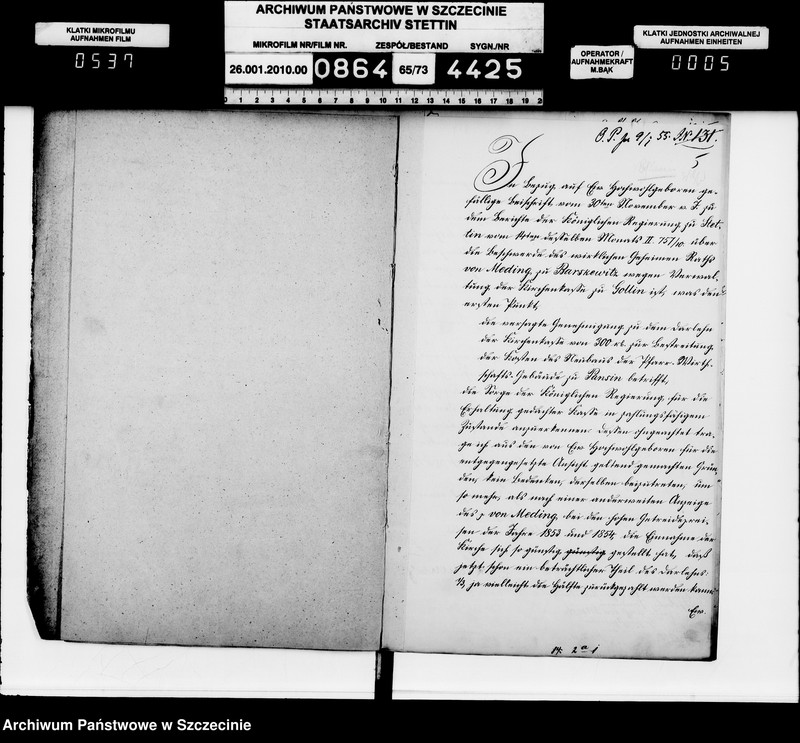 ARCHIWUM PAŃSTWOWE W SZCZECINIE
STAATSARCHIV STETTIN
KLATKI MIKROFILMU
AUFNAHMEN FILM
0537
MIKROFILM NR/FILM NR.
ZESPÓŁ/BESTAND
SYGN./NR
26.001.2010.00
0864
65/73
4425
OPERATOR /
AUFNAHMEKRAFT
M.BĄK
KLATKI JEDNOSTKI ARCHIWALNEJ
AUFNAHMEN EINHEITEN
0005
0 1 2 3 4 5 6 7 8 9 10 11 12 13 14 15 16 17 18 19 20
O. P. 9/ 55. 131.
5
In Bezug auf Ew Hochwohlgeboren ge-
fällige Beischrift vom 30ten November v. J. zu
dem Berichte der Königlichen Regierung zu Stet-
tin vom desselben Monats II. 757/10. über
die Beschwerde des wirklichen Geheimen Raths
von Meding zu Barskewitz wegen Verwal-
tung der Kirchenkasse zu Gollin ist, was den
ersten Punkt,
die versagte Genehmigung zu dem Darlehn
der Kirchenkasse von 300 rt. zur Bestreitung
der Kosten des Neubaus der Pfarr-Wirth-
schafts-Gebäude zu Pansin betrifft,
die Sorge der Königlichen Regierung für die
Erhaltung gedachter Kasse in zahlungsfähigem
Zustande anzuerkennen. Dessen ohngeachtet tra-
ge ich aus den von Ew Hochwohlgeboren für die
entgegengesetzte Ansicht geltend gemachten Grün-
den, kein Bedenken, derselben beizutreten, um
so mehr, als nach einer anderweiten Anzeige
des p von Meding, bei den hohen Getreideprei-
sen der Jahre 1853 und 1854, die Einnahme der
Kirche sich so günstig günstig gestellt hat, daß
jetzt schon ein beträchtlicher Theil des Darlehns,
ja vielleicht die Hälfte zurückgezahlt werden kann.
Ew.
Archiwum Państwowe w Szczecinie